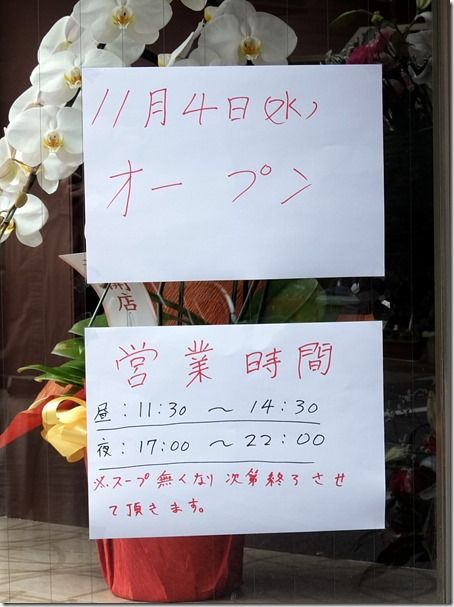 11月4日(水)
オープン
開店
営業時間
昼:11:30 〜 14:30
夜:17:00 〜 22:00
※スープ無くなり次第終了させ
て頂きます。